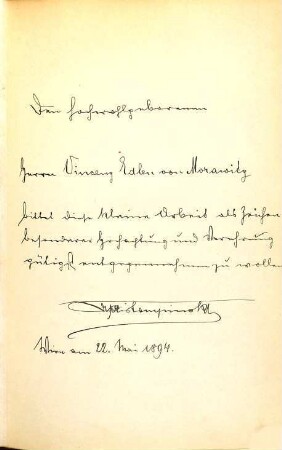 Den hochwohlgeborenen
Herrn Vincenz Edlen von Morawitz
bittet diese kleine Arbeit als Zeichen
besonderer Hochachtung und Verehrung
gütigst entgegennehmen zu wollen
Wien am 22. Mai 1894.